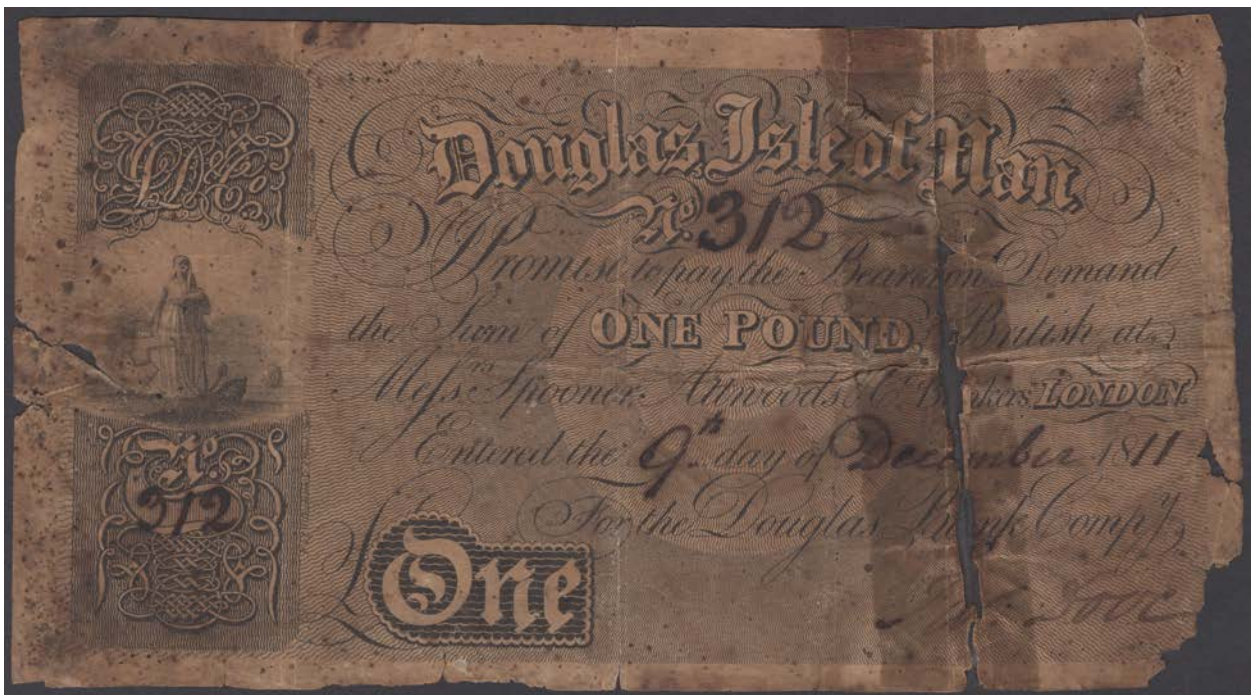 Douglas, Isle of Man,
No. 312
I Promise to pay the Bearer on Demand
the Sum of ONE POUND, British at
Messrs. Spooner, Attwoods & Co. Bankers LONDON.
Entered the 9th day of December 1811
For the Douglas Bank Compy.
£ One
No
312